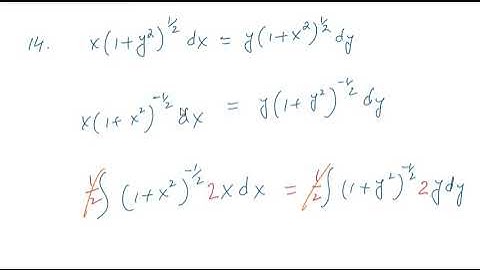 14. x(1+y²)^½ dx = y(1+x²)^½ dy
x(1+x²)^-½ dx = y(1+y²)^-½ dy
½∫(1+x²)^-½ 2x dx = ½∫(1+y²)^-½ 2y dy